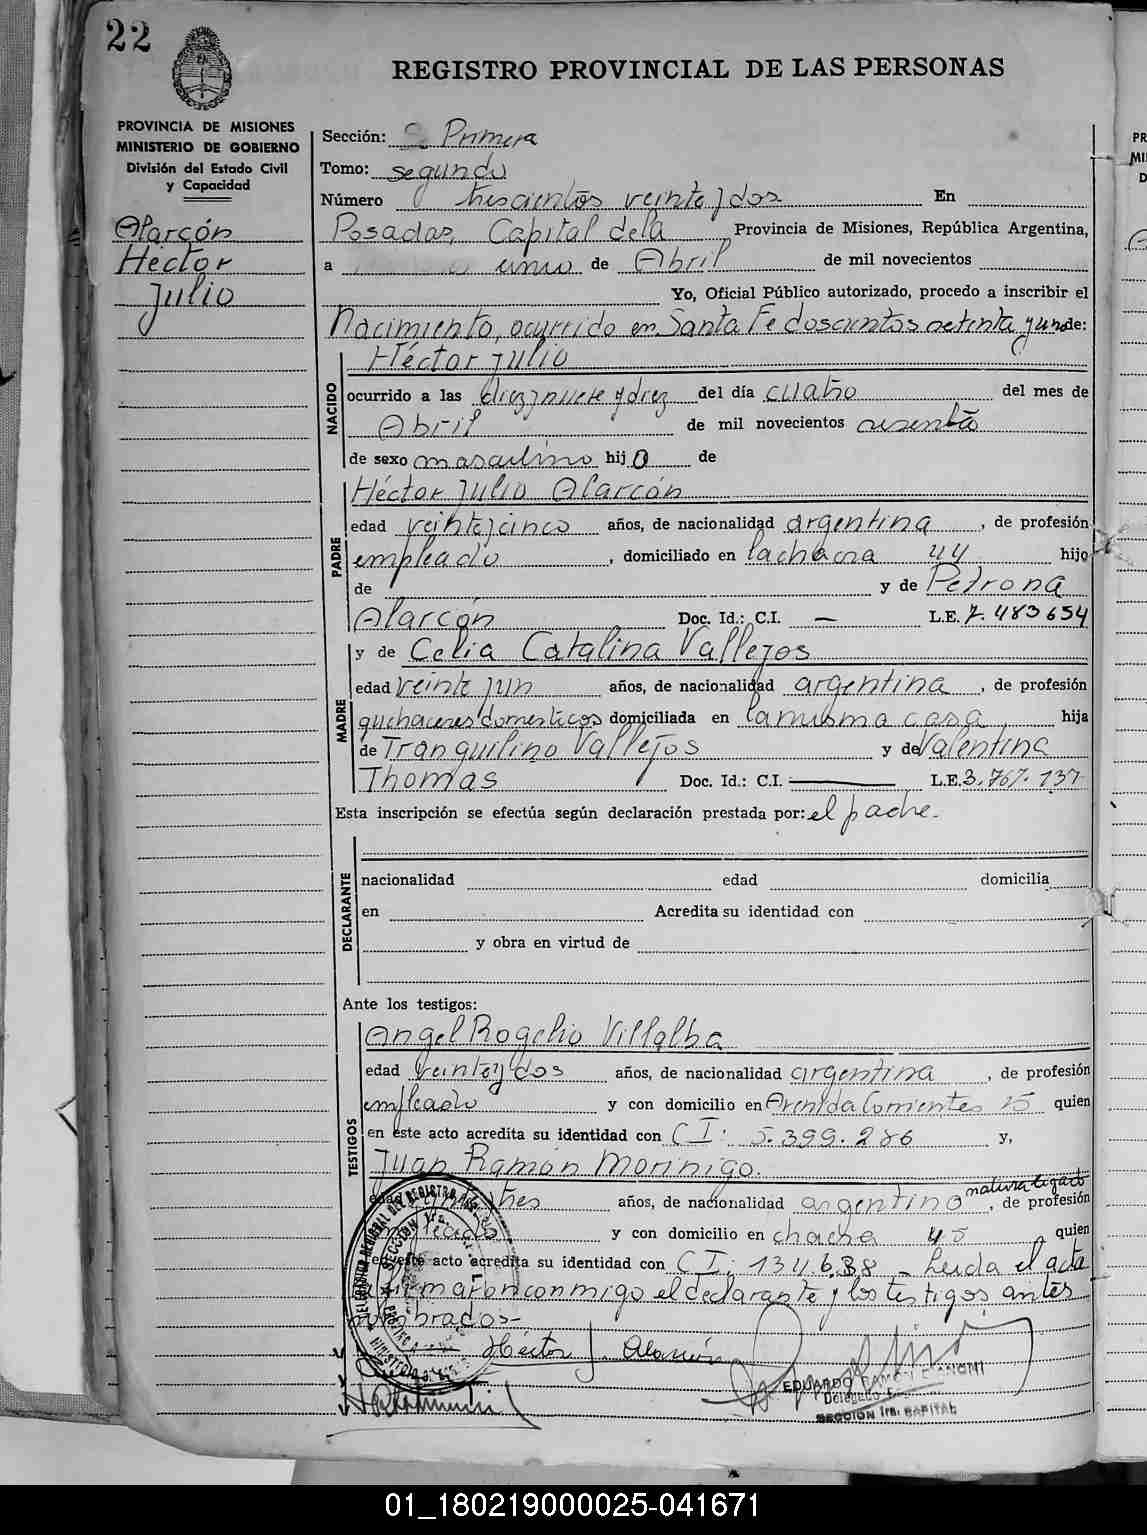 22
REGISTRO PROVINCIAL DE LAS PERSONAS
PROVINCIA DE MISIONES
MINISTERIO DE GOBIERNO
División del Estado Civil
y Capacidad
Alarcón
Héctor
Julio
Sección: Primera
Tomo: segundo
Número trescientos veinte y dos En
Posadas, Capital de la Provincia de Misiones, República Argentina,
a de Abril de mil novecientos
Yo, Oficial Público autorizado, procedo a inscribir el
Nacimiento, ocurrido en Santa Fe doscientos setenta y uno de:
NACIDO
Héctor Julio
ocurrido a las diez y nueve y diez del día cuatro del mes de
Abril de mil novecientos
de sexo masculino hijo de
PADRE
Héctor Julio Alarcón
edad veinte y cinco años, de nacionalidad argentina, de profesión
empleado, domiciliado en la chacra 44 hijo
de y de Petrona
Alarcón Doc. Id.: C.I. — L.E. 7.483654
MADRE
y de Celia Catalina Vallejos
edad veinte y un años, de nacionalidad argentina, de profesión
quehaceres domesticos domiciliada en la misma casa hija
de Tranquilino Vallejos y de Valentina
Thomas Doc. Id.: C.I. — L.E. 3.767.137
Esta inscripción se efectúa según declaración prestada por: el padre.
DECLARANTE
nacionalidad edad domicilia
en Acredita su identidad con
y obra en virtud de
Ante los testigos:
TESTIGOS
Angel Rogelio Villalba
edad veinte y dos años, de nacionalidad argentina, de profesión
empleado y con domicilio en Avenida Corrientes 25 quien
en este acto acredita su identidad con CI: 5.399.286 y,
Juan Ramón Morinigo.
edad tres años, de nacionalidad argentino naturalizado, de profesión
y con domicilio en chacra 45 quien
en este acto acredita su identidad con CI: 134.638 - Leida el acta
firmaron conmigo el declarante y los testigos antes
nombrados-
Héctor J. Alarcón
EDUARDO RAMON
Delegado
SECCION 1ra. CAPITAL
01_180219000025-041671